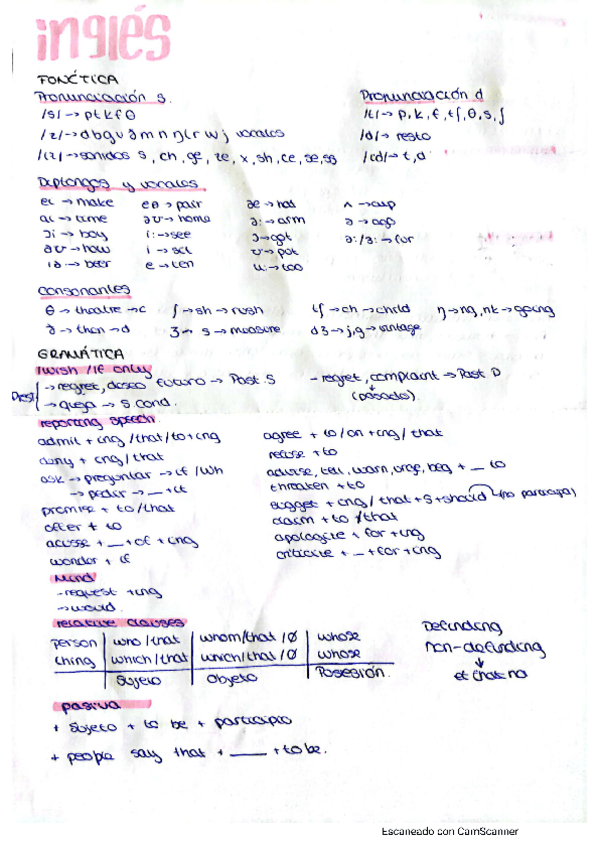 inglés
FONÉTICA
Pronunciación s.
/s/→ p t k f θ
/z/→ d b g v ð m n ŋ l r w j vocales
/ız/→ sonidos s, ch, ge, ze, x, sh, ce, se, ss
Pronunciación d
/t/→ p, k, f, tʃ, θ, s, ʃ
/d/→ resto
/ıd/→ t, d
Diptongos y vocales
eı → make
aı → time
ɔı → boy
aʊ → how
ıə → beer
eə → pair
əʊ → home
i: → see
ı → sit
e → ten
æ → hat
a: → arm
ɔ → got
ʊ → put
u: → too
ʌ → cup
ə → ago
ə:/з: → fur
Consonantes
θ → theatre → c
ð → then → d
ʃ → sh → rush
ʒ → s → measure
tʃ → ch → child
dʒ → j, g → vintage
ŋ → ng, nk → going
GRAMÁTICA
I wish / If only
Pres. → regret, deseo futuro → Past. S
→ queja → S cond.
- regret, complaint → Past P
(pasado).
reporting speech.
admit + ing / that / to + ing
deny + ing / that
ask → preguntar → if / wh
→ pedir → __ + it
promise + to / that
offer + to
accuse + __ + of + ing
wonder + if
agree + to / on + ing / that
refuse + to
advise, tell, warn, urge, beg + __ to
threaten + to
suggest + ing / that + S + should (no participa)
claim + to / that
apologize + for + ing
criticize + __ + for + ing
Mind
- request + ing
→ would.
relative clauses
person who / that whom / that / Ø whose
thing which / that which / that / Ø whose
Sujeto Objeto Posesión.
Defining
non-defining
↓
et that no
pasiva
+ Sujeto + to be + participio
+ people say that + ____ + to be.
Escaneado con CamScanner